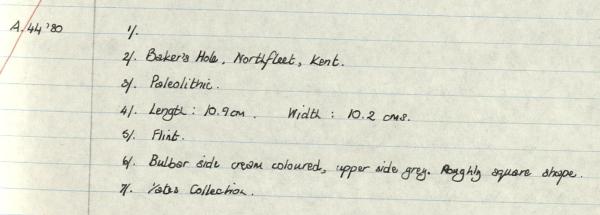 A.44'80 1/.
2/. Baker's Hole, Northfleet, Kent.
3/. Paleolithic.
4/. Length : 10.9cm. Width : 10.2 cms.
5/. Flint.
6/. Bulbar side cream coloured, upper side grey. Roughly square shape.
7/. Yates Collection.